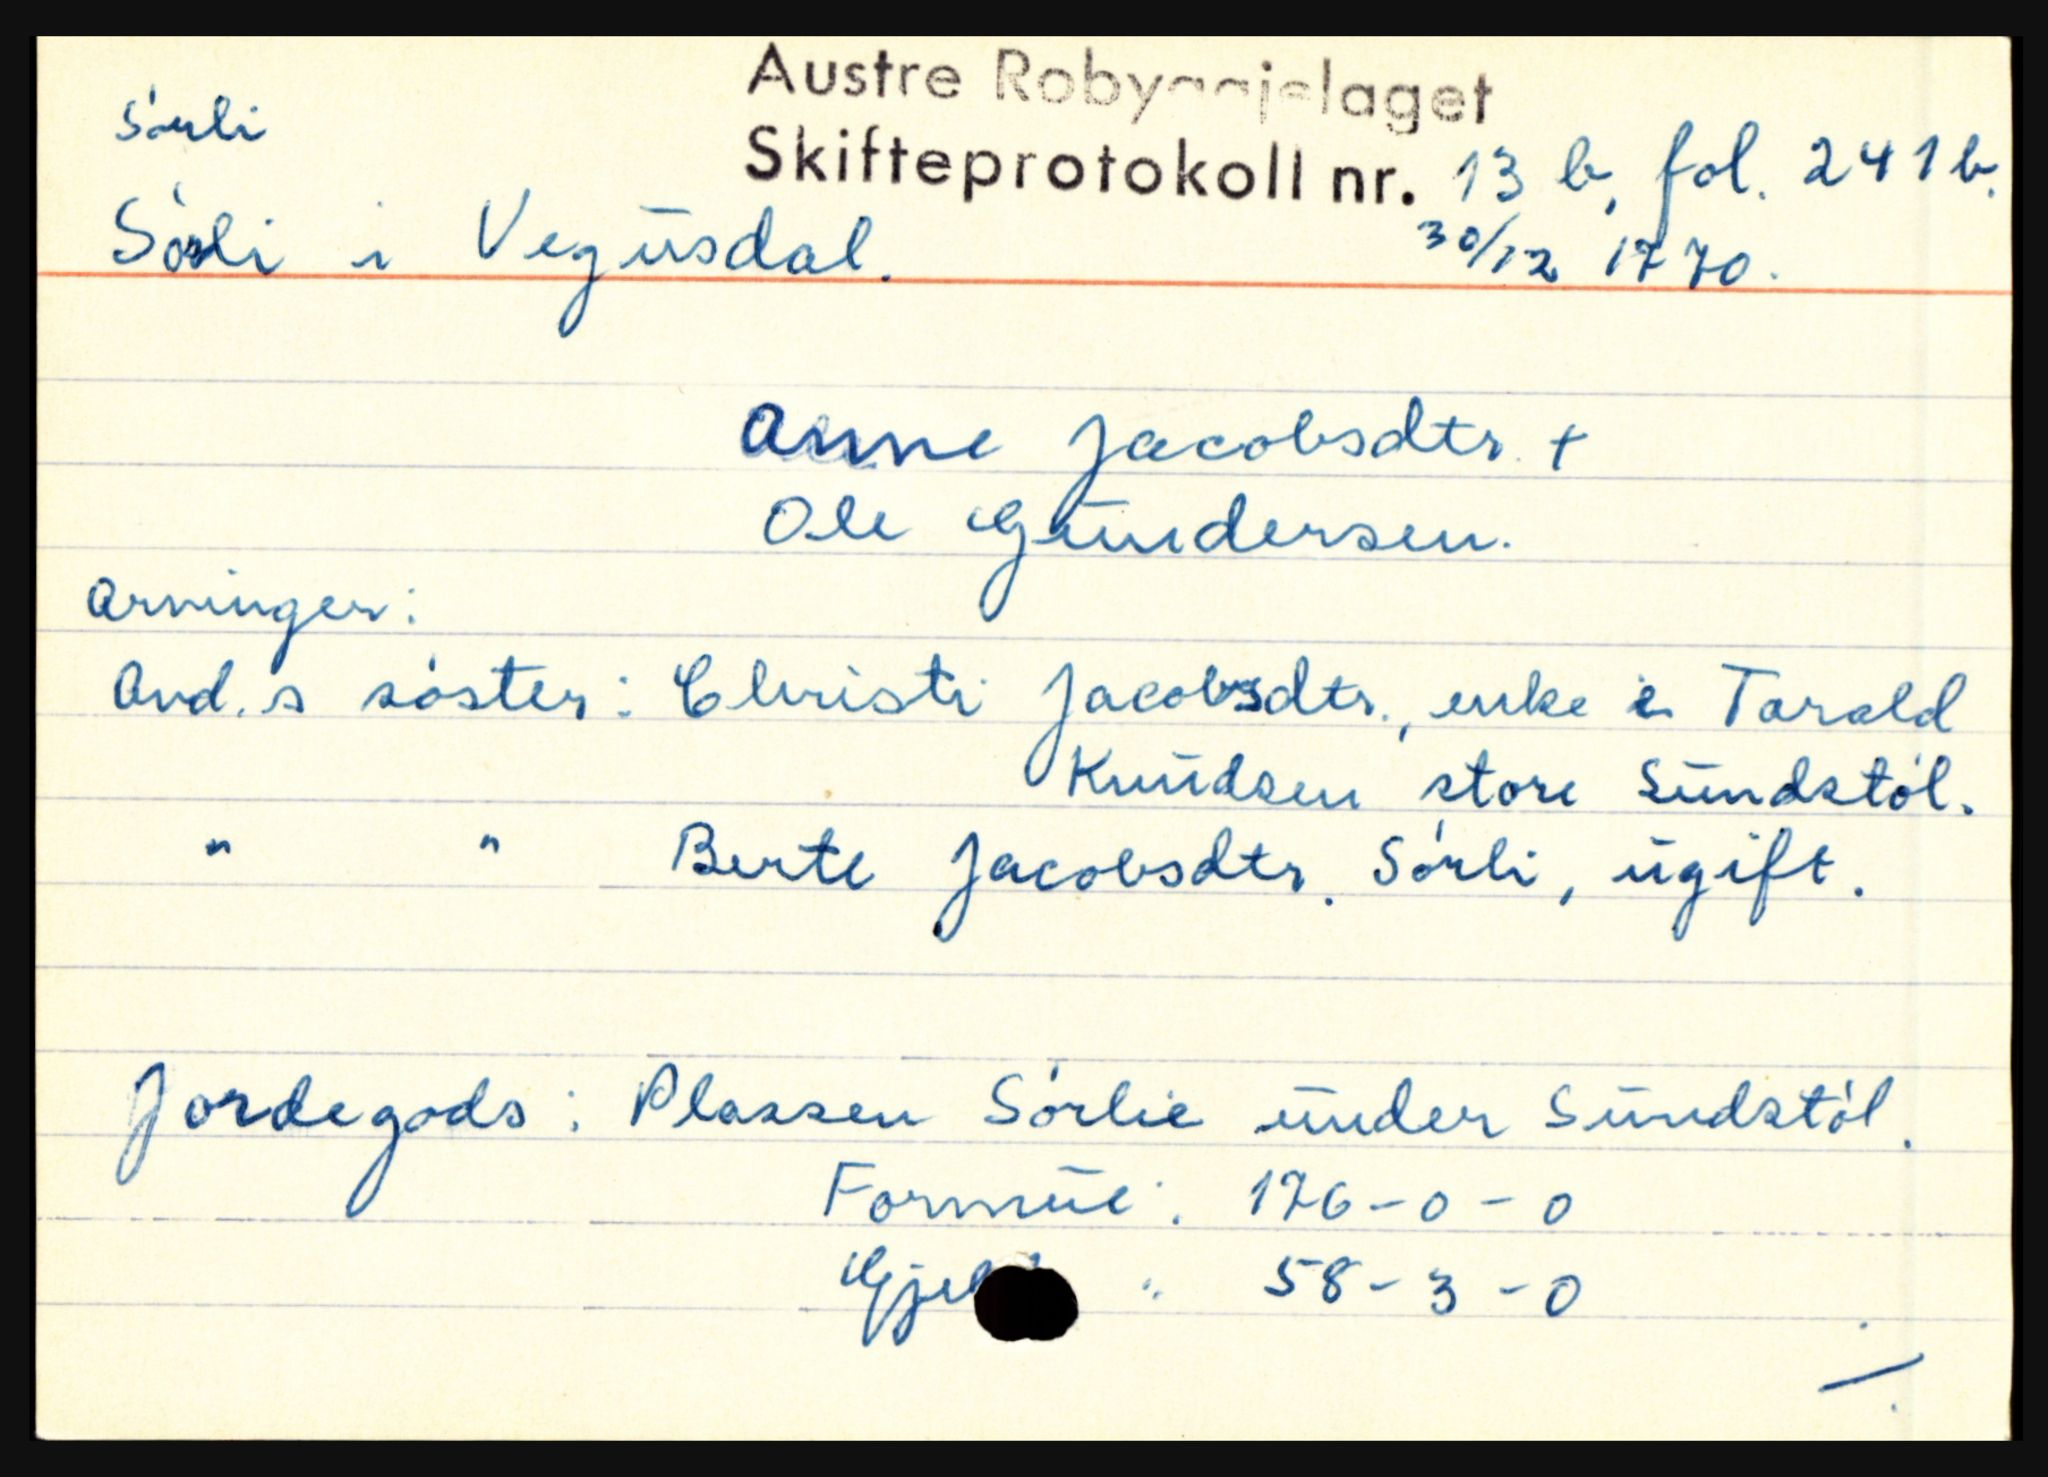 Austre Robyggjelaget
Sørli
Skifteprotokoll nr. 13 b, fol. 241 b.
Sørli i Vegusdal. 30/12 1770.
Anne Jacobsdtr. +
Ole Gundersen.
Arvinger:
Avd. s søster: Christi Jacobsdtr., enke e Tarald
Knudsen store Sundstøl.
" " Berte Jacobsdtr. Sørli, ugift.
Jordegods: Plassen Sørlie under Sundstøl.
Formue: 176-0-0
Gjeld " 58-3-0